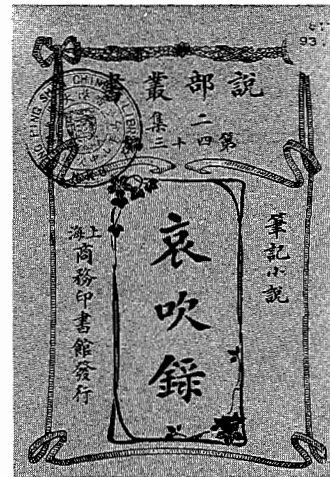 說部叢書
二集
第四十三
筆記小說
哀吹錄
上海商務印書館發行